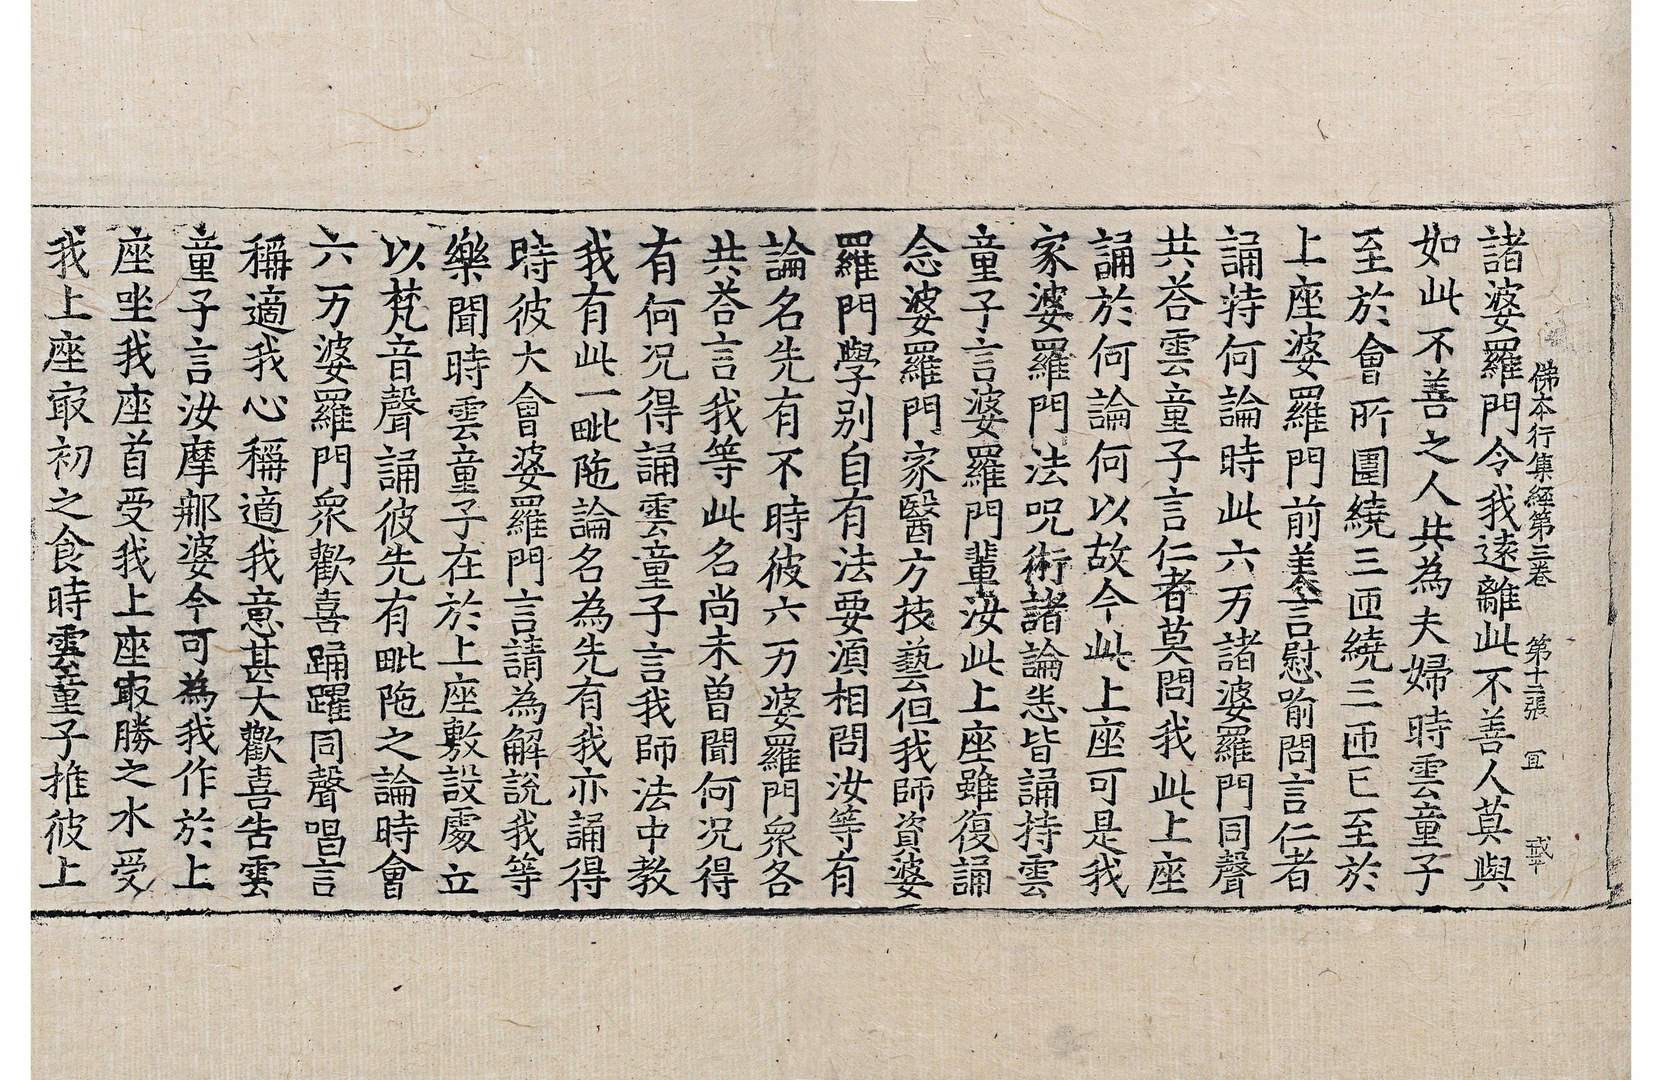 佛本行集經第三卷　第十二張　冝
諸婆羅門令我遠離此不善人莫與
如此不善之人共為夫婦時雲童子
至於會所圍繞三匝繞三匝已至於
上座婆羅門前美言慰喻問言仁者
誦持何論時此六万諸婆羅門同聲
共荅雲童子言仁者莫問我此上座
誦於何論何以故今此上座可是我
家婆羅門法呪術諸論悉皆誦持雲
童子言婆羅門輩汝此上座雖復誦
念婆羅門家醫方技藝但我師資婆
羅門學別自有法要湏相問汝等有
論名先有不時彼六万婆羅門衆各
共荅言我等此名尚未曽聞何况得
有何况得誦雲童子言我師法中教
我有此一毗陁論名為先有我亦誦得
時彼大會婆羅門言請為解說我等
樂聞時雲童子在於上座敷設處立
以梵音聲誦彼先有毗陁之論時會
六万婆羅門衆歡喜踊躍同聲唱言
稱適我心稱適我意甚大歡喜告雲
童子言汝摩䣯婆今可為我作於上
座坐我座首受我上座㝡勝之水受
我上座㝡初之食時雲童子推彼上